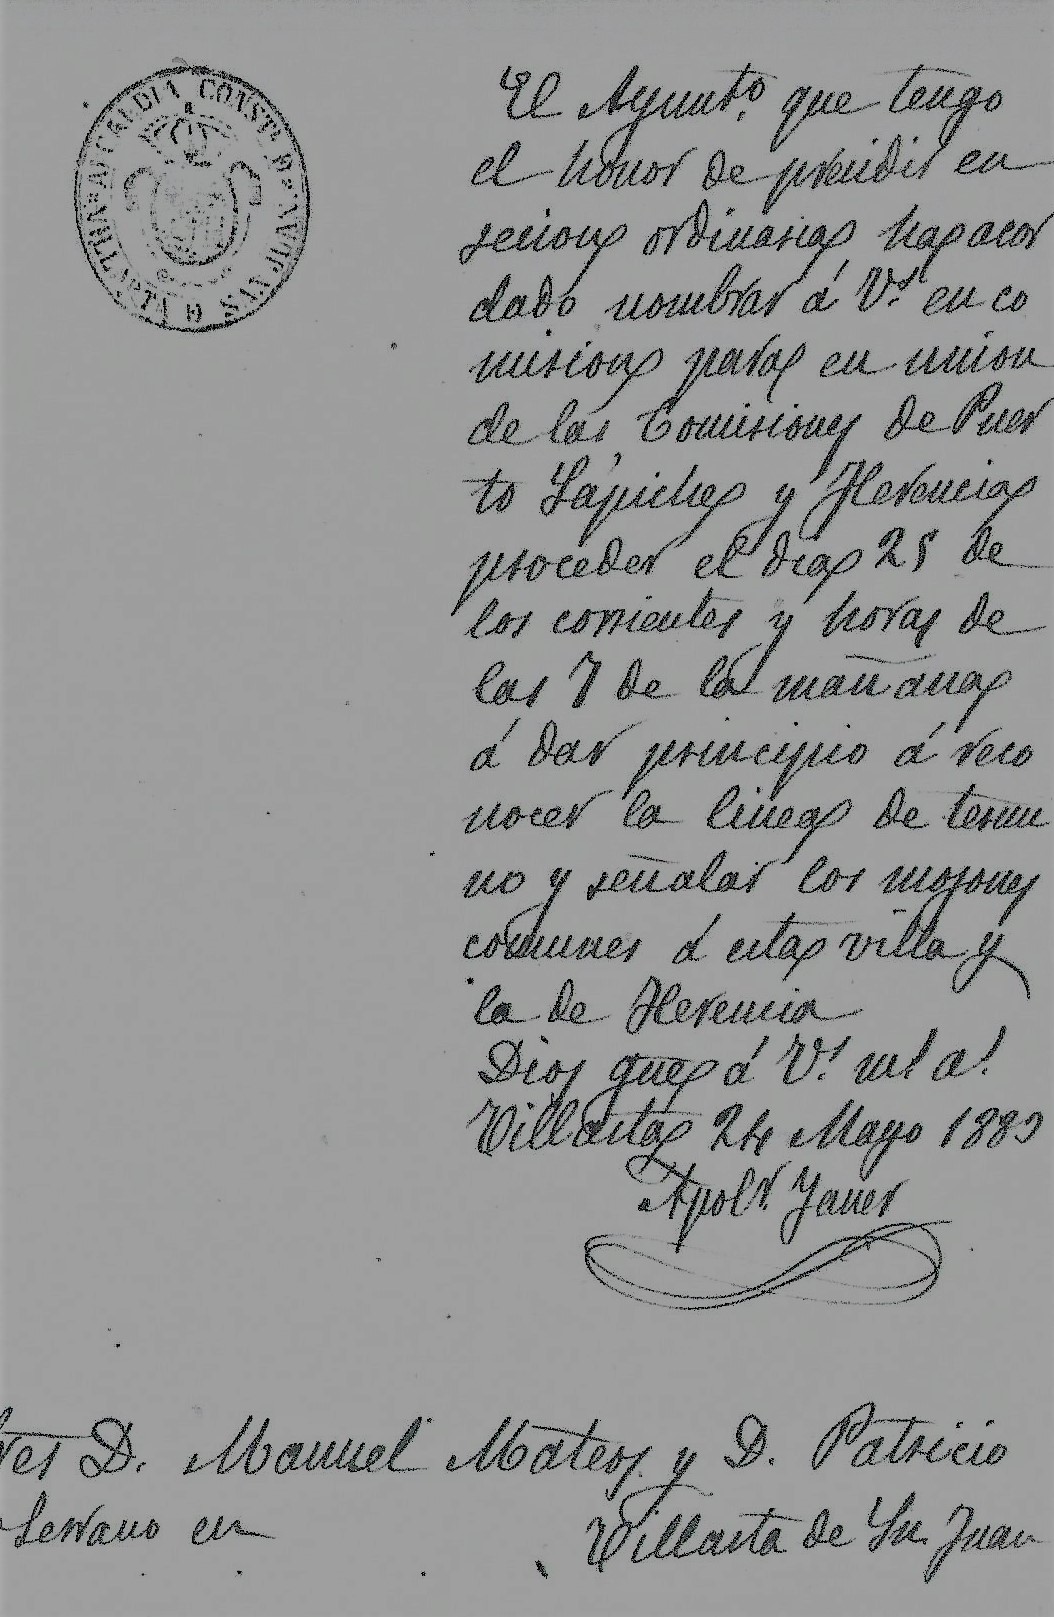 ALCALDIA CONSTL. DE VILLARTA D SAN JUAN
El Ayuntº. que tengo
el honor de presidir en
sesion ordinaria ha acor
dado nombrar á Vs. en co
mision para en union
de las Comisiones de Puer
to Lápiche y Herencia
proceder el dia 25 de
los corrientes y hora de
las 7 de la mañana
á dar principio á reco
nocer la linea de termi
no y señalar los mojones
comunes á esta villa y
la de Herencia
Dios gue á Vs. ms. as.
Villarta 24 Mayo 1889
Apolr. Janer
res D. Manuel Mateos y D. Patricio
Serrano en
Villarta de Sn. Juan